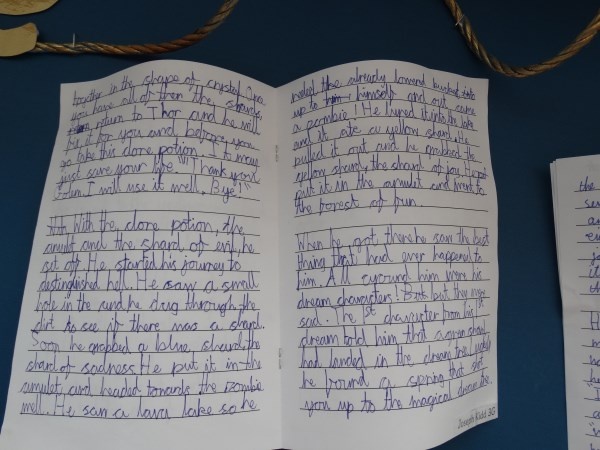 together in the shape of crystal. Once
you have all of them the shards,
return to Thor and he will
fix it for you and before you
go take this clone potion, it may
just save your life "Thank you
I will use it well. Bye!"
With the clone potion, the
amulet and the shard of evil, he
set off. He started his journey to
distinguished hell. He saw a small
hole in the and he dug through the
dirt to see if there was a shard.
Soon he grabbed a blue shard, the
shard of sadness. He put it in the
amulet and headed towards the zombie
well. He saw a lava lake so he
the already lowered bucket
up to himself and out came
a zombie! He lured it into the lake
and it ate a yellow shard. He
pulled it out and he grabbed the
yellow shard, the shard of joy. He
put it in the amulet and went to
the forest of fun.
When he got there he saw the best
thing that had ever happened to
him. All around him were his
dream characters! But they were
sad. The 1st character from his
dream told him that a shard
had landed in the dream tree. Luckily
he found a spring that shot
you up to the magical dream tree.
Joseph Kidd 3G
the